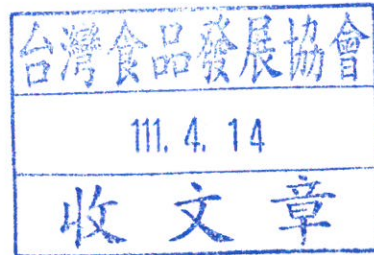 台灣食品發展協會
111. 4. 14
收文章